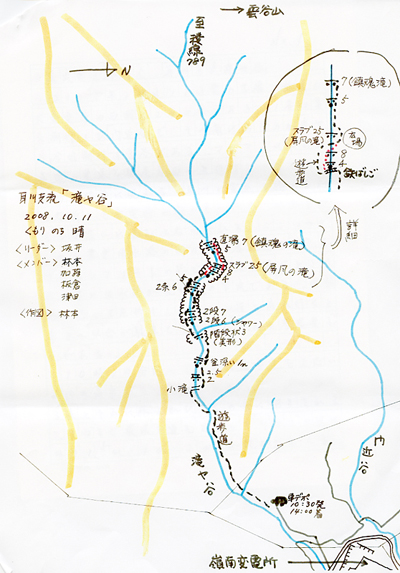 →雲谷山
至稜線
789
→N
耳川支流「滝ヶ谷」
2008.10.11
くもりのち晴
<リーダー> 坂井
<メンバー> 林本
加藤
板倉
津田
<作図> 林本
7(鎮魂滝)
5
スラブ25
(屏風の滝)
直場
8
4
遊歩道
鉄ばしご
詳細
直場7(鎮魂の滝)
5
スラブ25(屏風の滝)
8
4
5
2条6
2段7
2段6(シャワー)
階段状3
(美形)
釜深い1m
2.5
2
小滝
遊歩道
滝ヶ谷
車デポ
10:30発
14:00着
門近谷
嶺南変電所